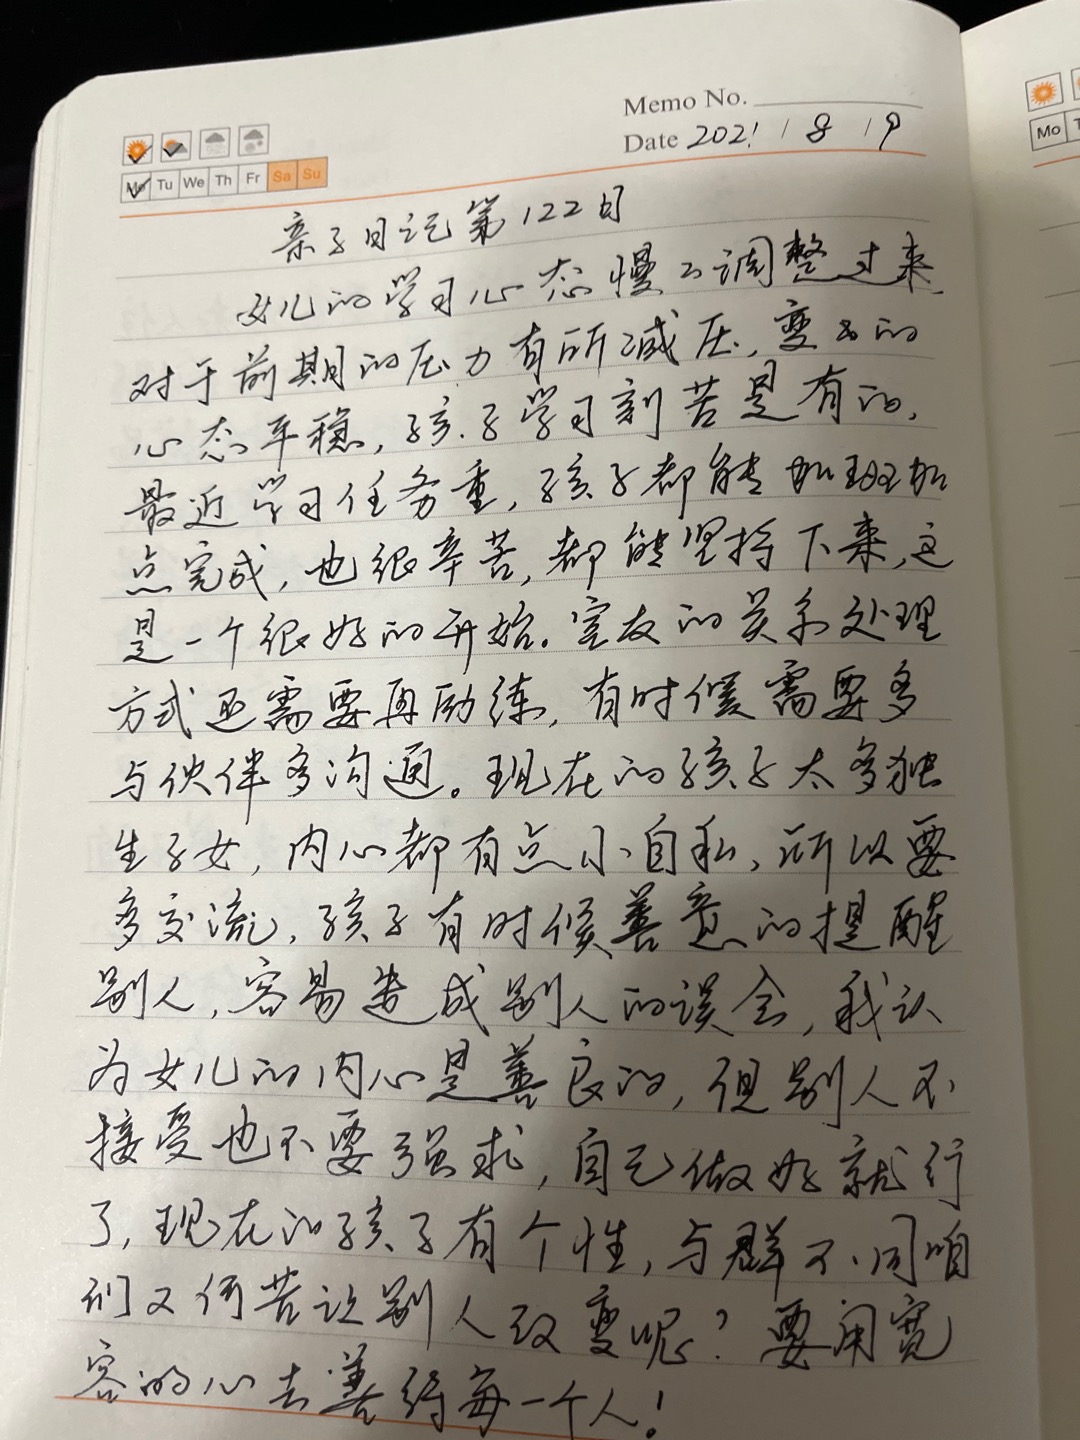 Memo No.
Date 2021 / 8 / 9
Mo Tu We Th Fr Sa Su
Mo
亲子日记第122日
女儿的学习心态慢々调整过来
对于前期的压力有所减压，变の的
心态平稳，孩子学习刻苦是有的，
最近学习任务重，孩子都能加班加
点完成，也很辛苦，都能坚持下来，这
是一个很好的开始。室友的关系处理
方式还需要再励练，有时候需要多
与伙伴多沟通。现在的孩子太多独
生子女，内心都有点小自私，所以要
多交流，孩子有时候善意的提醒
别人，容易造成别人的误会，我认
为女儿的内心是善良的，但别人不
接受也不要强求，自己做好就行
了，现在的孩子有个性，与群不同咱
们又何苦让别人改变呢？要用宽
容的心去善待每一个人！